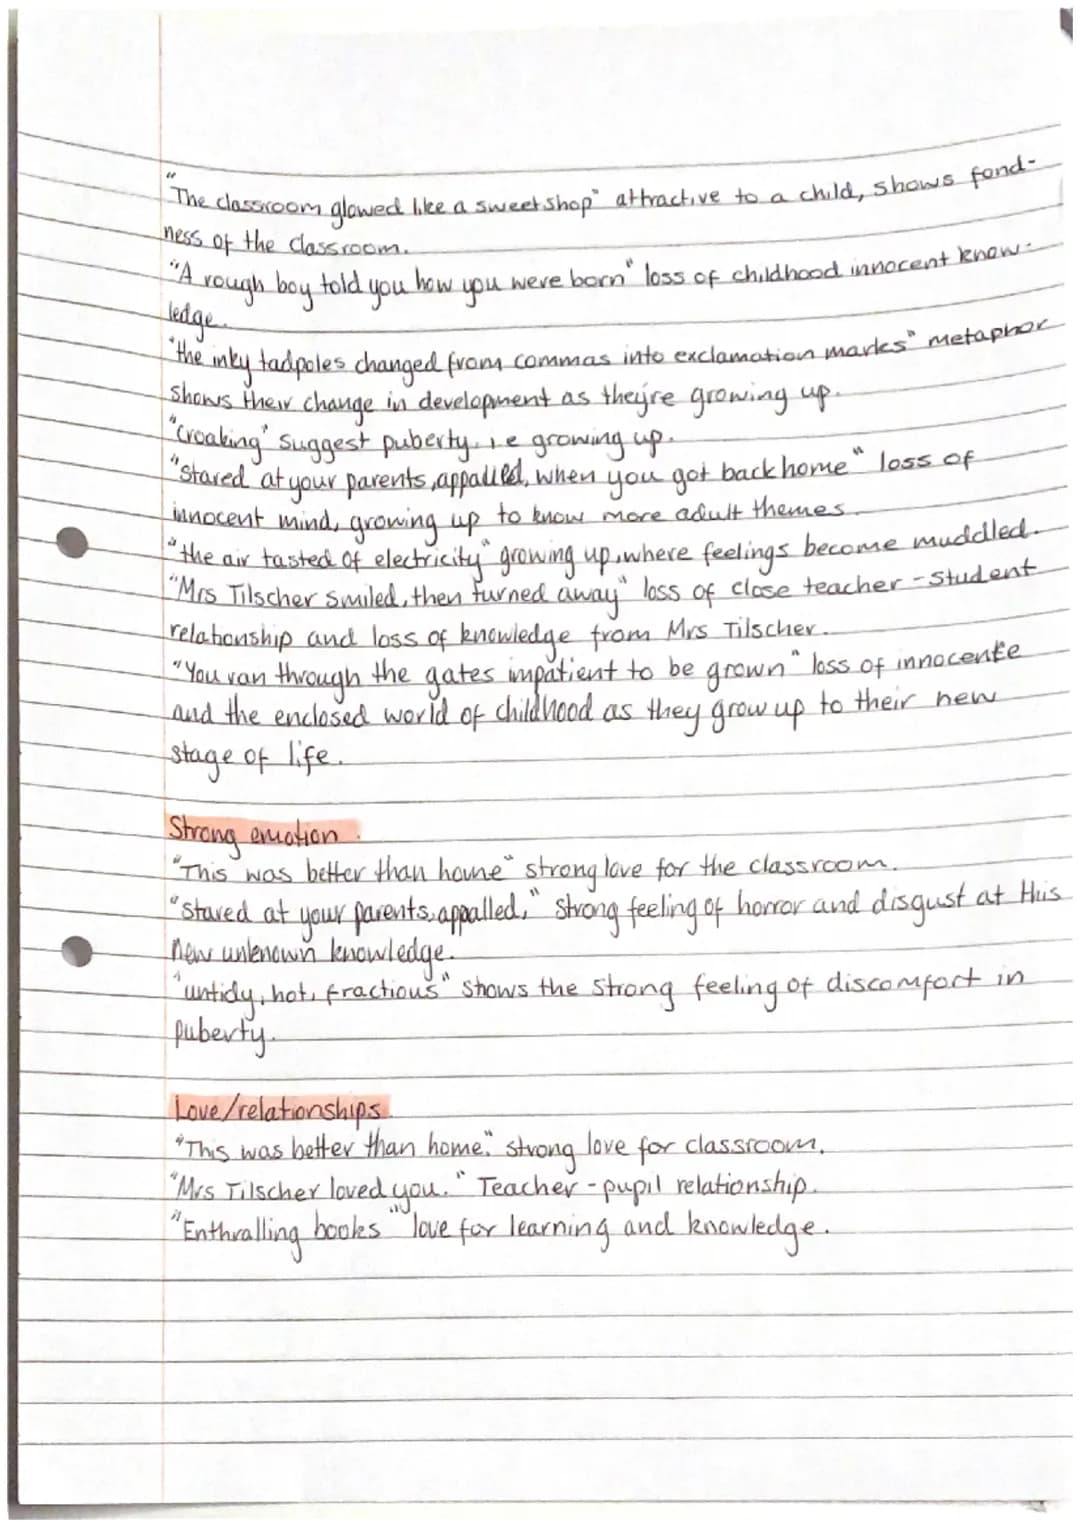 "The classroom glowed like a sweetshop" attractive to a child, shows fond-
ness of the classroom.
"A rough boy told you how you were born" loss of childhood innocent know-
ledge.
"the inky tadpoles changed from commas into exclamation marks" metaphor
shows their change in development as they're growing up.
"Croaking" suggest puberty. i.e growing up.
"Stared at your parents, appalled, when you got back home" loss of
innocent mind, growing up to know more adult themes.
"the air tasted of electricity" growing up, where feelings become muddled.
"Mrs Tilscher smiled, then turned away" loss of close teacher-student
relationship and loss of knowledge from Mrs Tilscher.
"You ran through the gates impatient to be grown" loss of innocence
and the enclosed world of childhood as they grow up to their new
stage of life.
Strong emotion.
"This was better than home" strong love for the classroom.
"Stared at your parents, appalled," strong feeling of horror and disgust at this
new unknown knowledge.
"untidy, hot, fractious" shows the strong feeling of discomfort in
puberty.
Love/relationships.
"This was better than home." strong love for classroom.
"Mrs Tilscher loved you." Teacher-pupil relationship.
"Enthralling books" love for learning and knowledge.